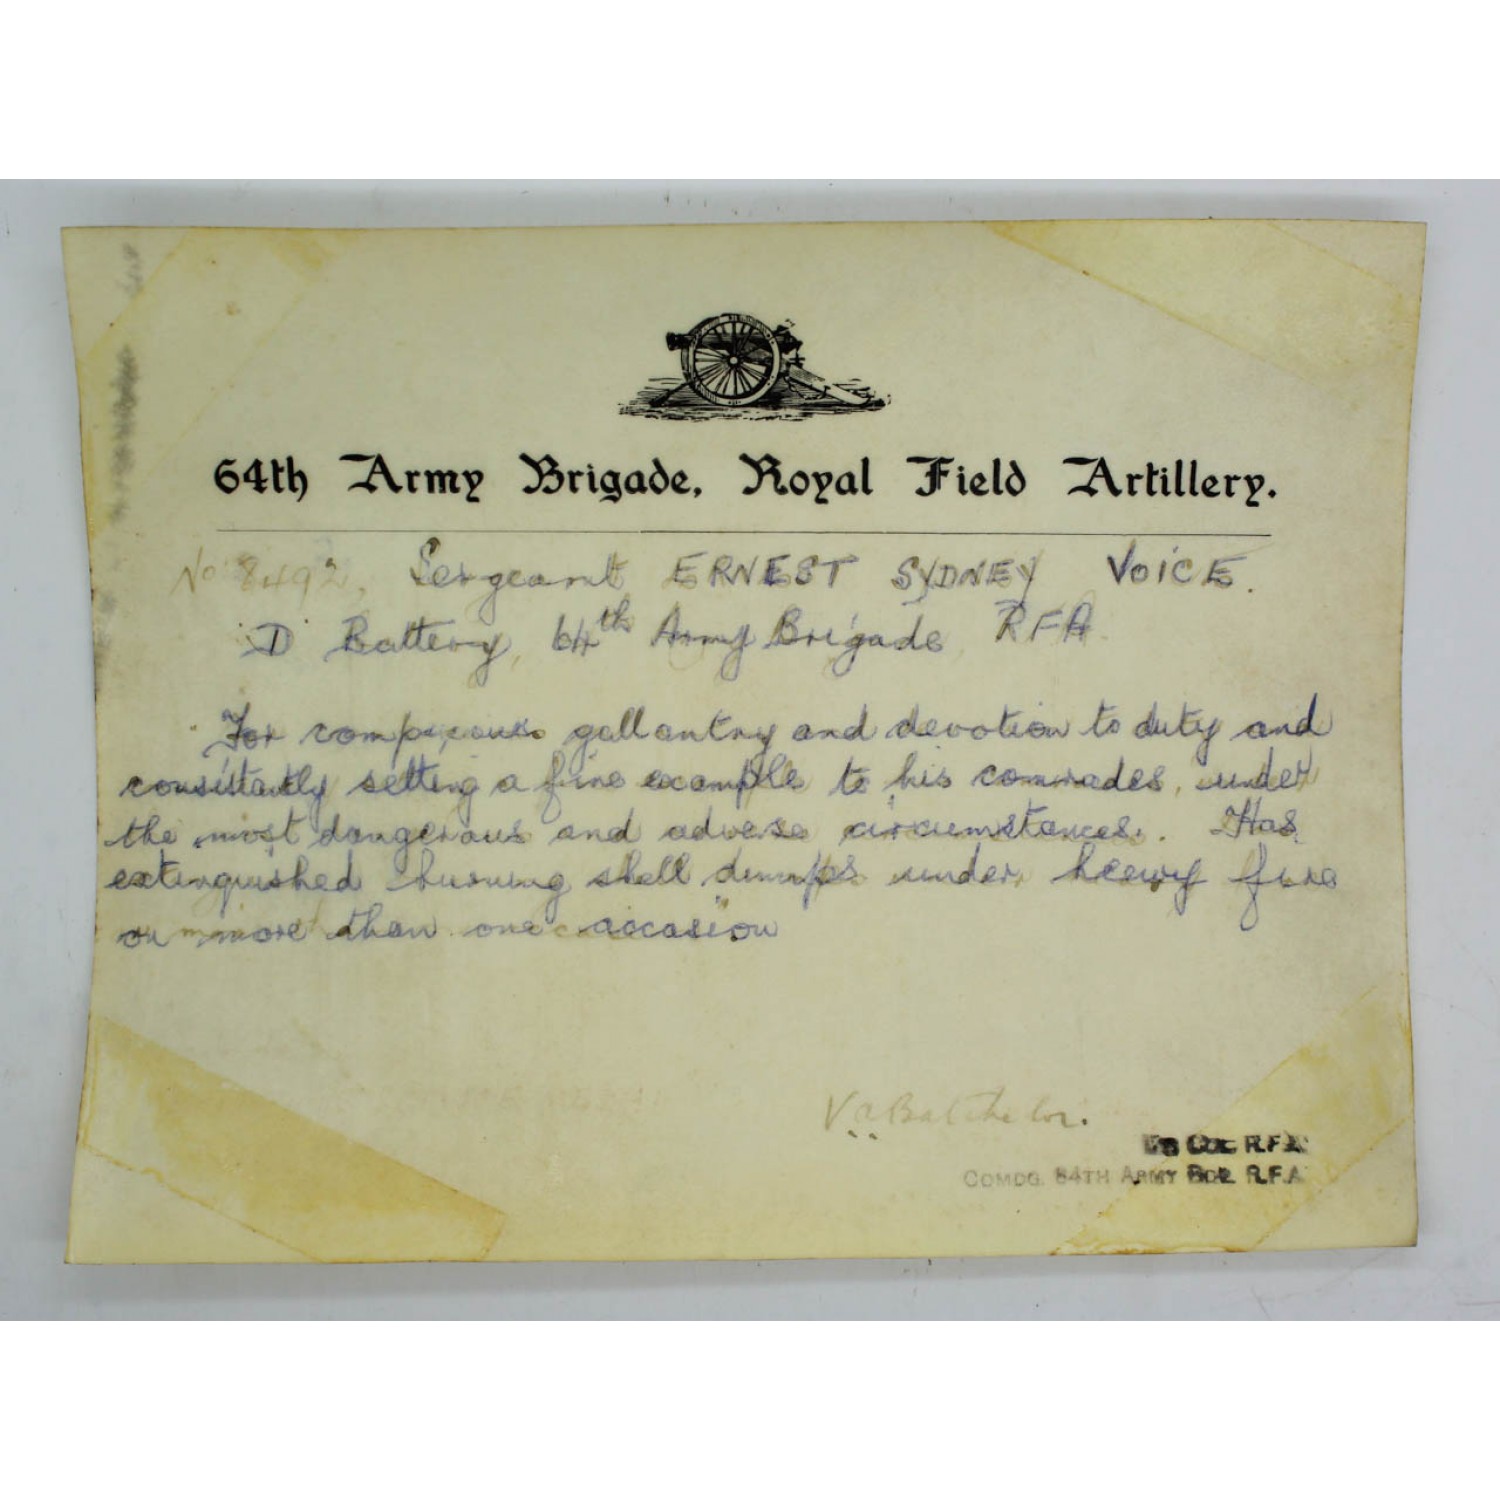 64th Army Brigade, Royal Field Artillery.
No 8492, Sergeant ERNEST SYDNEY VOICE.
'D' Battery, 64th Army Brigade RFA.
For compicuous gallantry and devotion to duty and
consistantly setting a fine example to his comrades, under
the most dangerous and adverse circumstances. Has
extinguished burning shell dumps under heavy fire
on more than one occasion
V a Batchelor.
COL R.F.A.
COMDG. 64TH ARMY BDE. R.F.A.